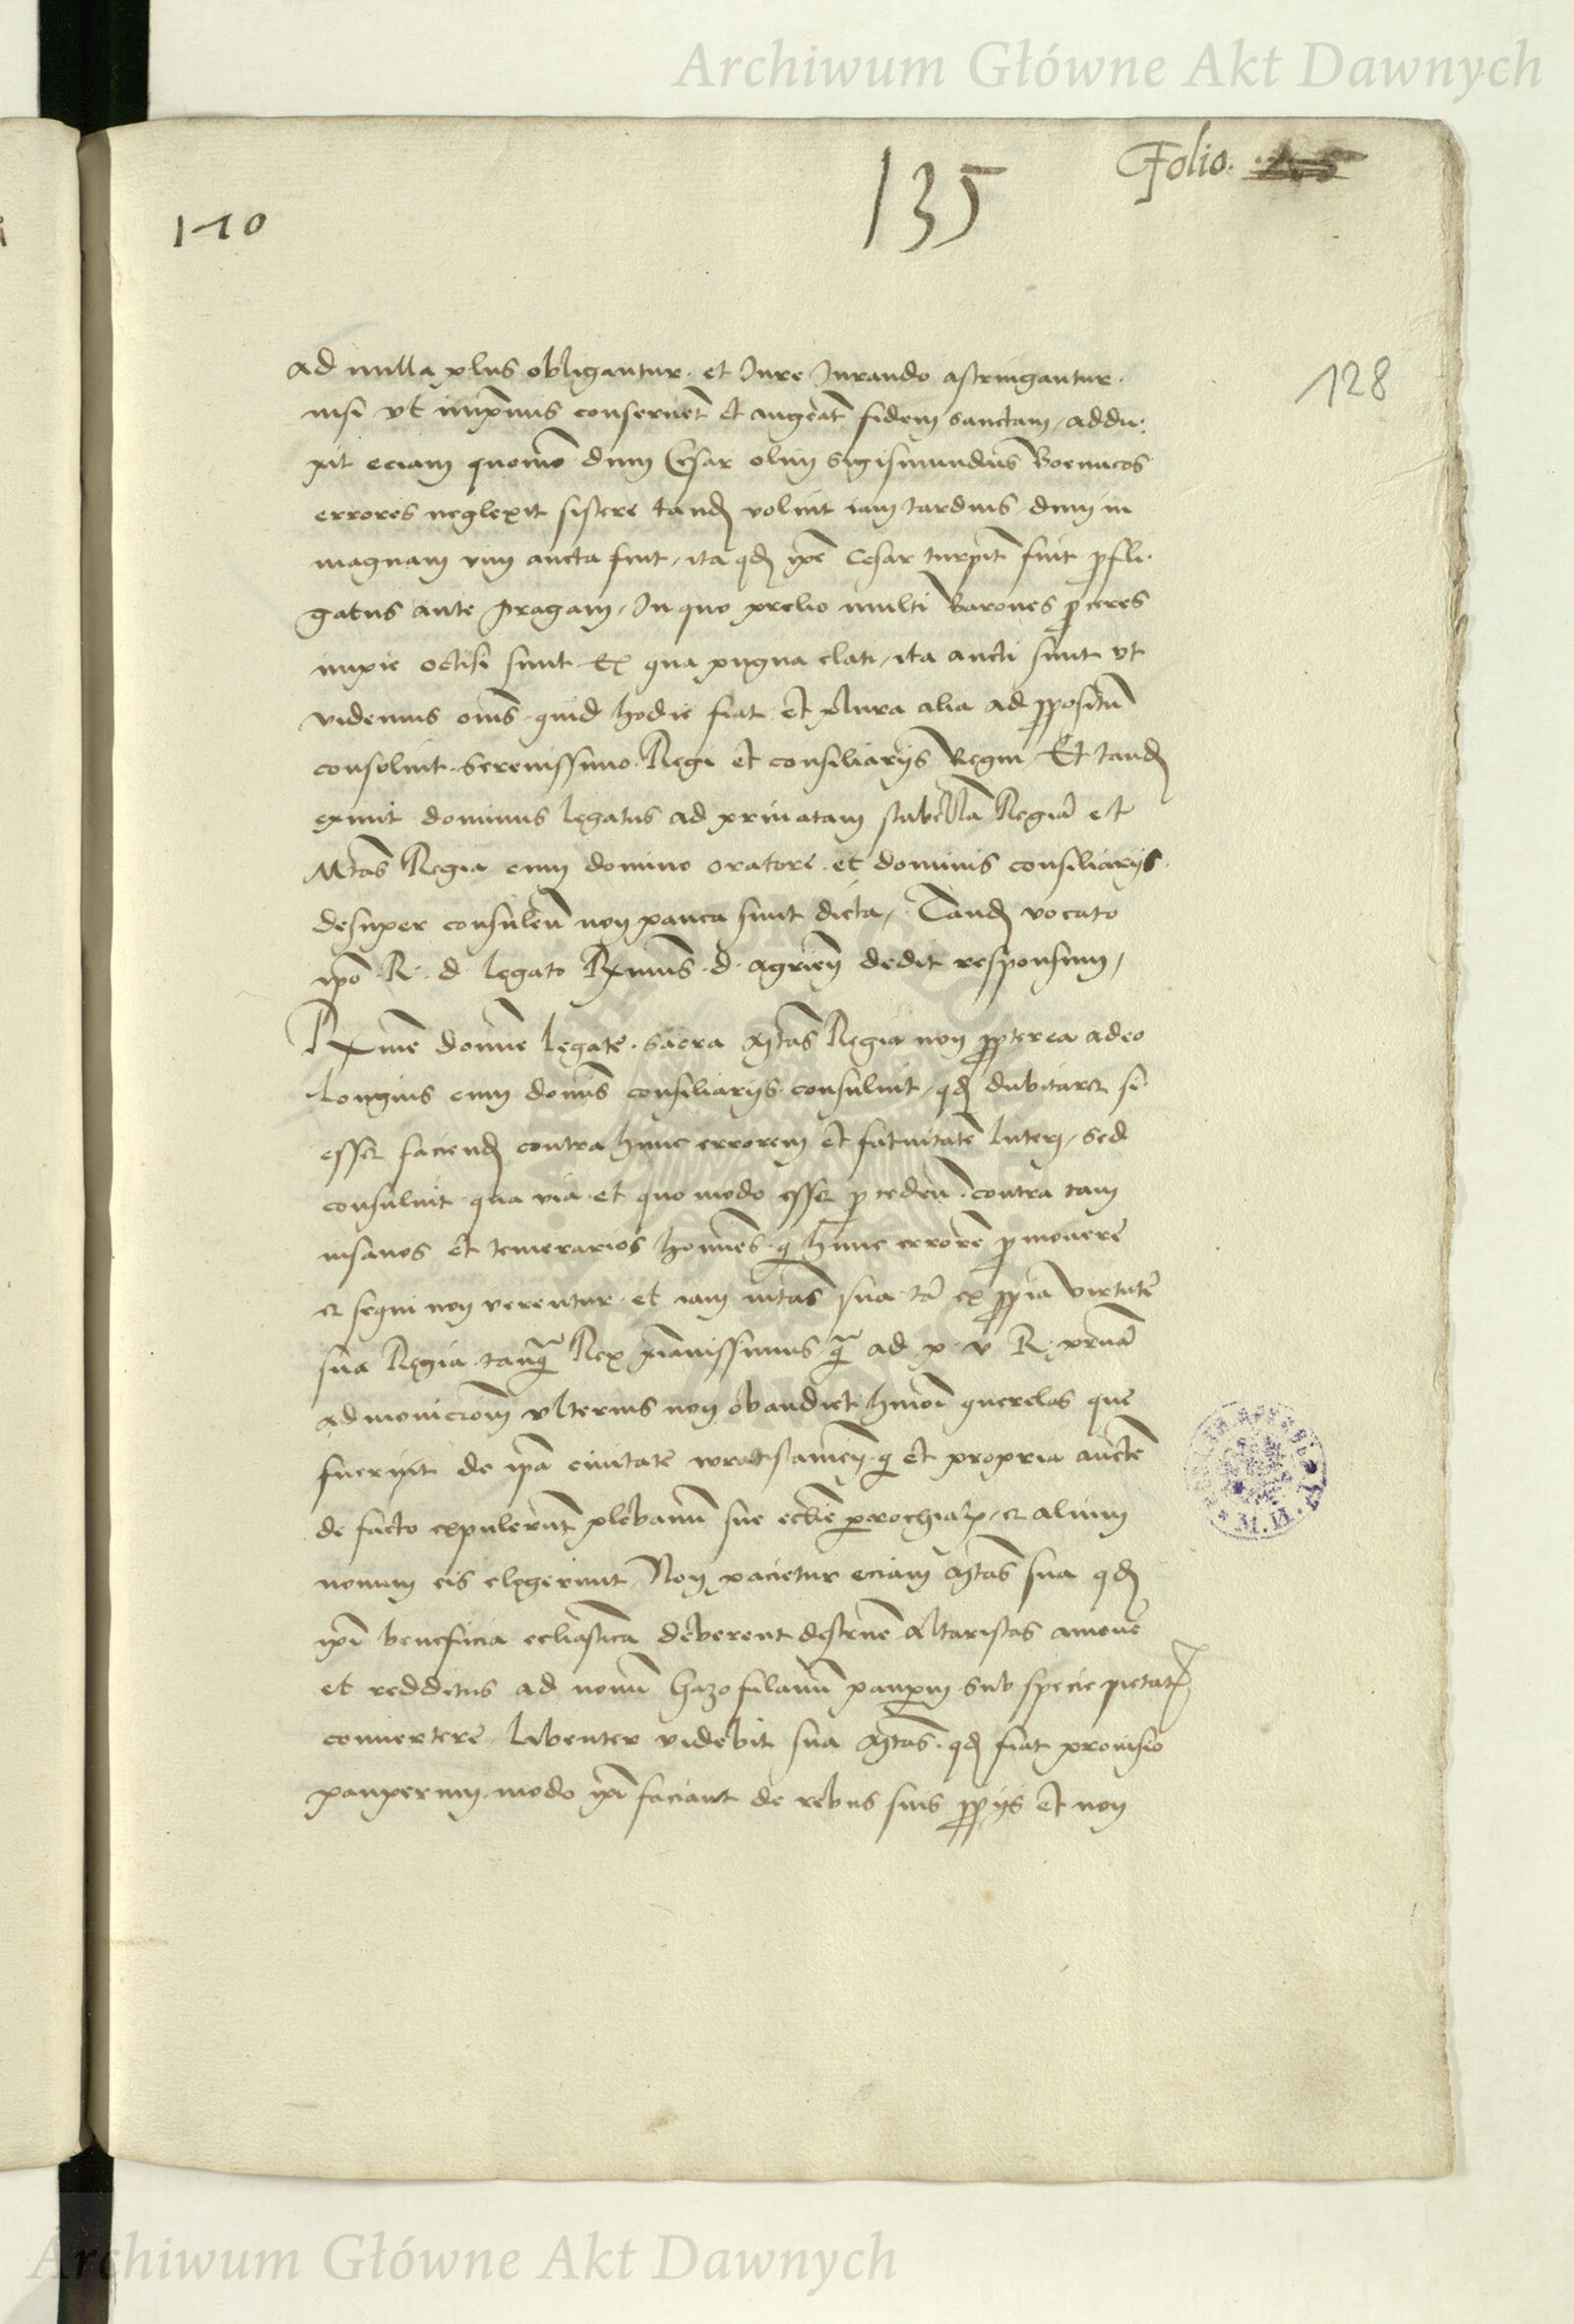 Archiwum Główne Akt Dawnych
Folio.
135
110
128
Ad nulla plus obligantur. et Jure Jurando astringantur.
nisi vt imprimis conseruet et augeat fidem sanctam, addu:
xit eciam quomo dum Cesar olim Sigismundus Boemicos
errores neglexit sistere tandem voluit iam tardius dum in
magnam vim aucta sint, ita qd ipse Cesar turpiter fuit profli.
gatus ante pragam, In quo prelio multi Barones proceres
impie occisi sunt Ex qua pugna elati, ita aucti sunt vt
videmus oms quid hodie fiat et plura alia ad propositu
consoluit Serenissimo Regi et consiliarijs Regni Et tandem
exiuit dominus legatus ad priuatam stubella Regia et
Mtas Regia cum domino oratore et dominis consiliarijs.
desuper consulen non pauca sunt dicta, Tandem vocato
ipo R. d. legato Rximus d. Agrien dedit responsum,
Rxime domine legate. sacra Mtas Regia non propterea adeo
longius cum dominis consiliarijs consuluit, qd dubitaret si
esset faciend contra hunc errorem et fatuitate luteri, sed
consuluit qua via et quo modo esset proceden. contra tam
insanos et temerarios homines. qui hunc errore promouere
et sequi non verentur et iam mtas sua ta ex propria virtute
sua Regia tanqua Rex xianissimus qua ad p. v R. prna
admonicione vlterius non obaudiet hmoi querelas que
fuerint de ipa ciuitate wratislauien. qui et propria aucte
de facto expulerunt plebanu sue ecclie parrochialis, et alium
nouum eis elegerunt Non pacietur eciam Mtas sua qd
ipi beneficia ecliastica deberent destruere Altaristas amouere
et redditus ad nouu Gazofilaciu pauperum sub specie pietatis
conuertere. libenter videbit sua Mtas qd fiat prouisio
pauperum modo ipi faciant de rebus suis proprijs et non
Archiwum Główne Akt Dawnych